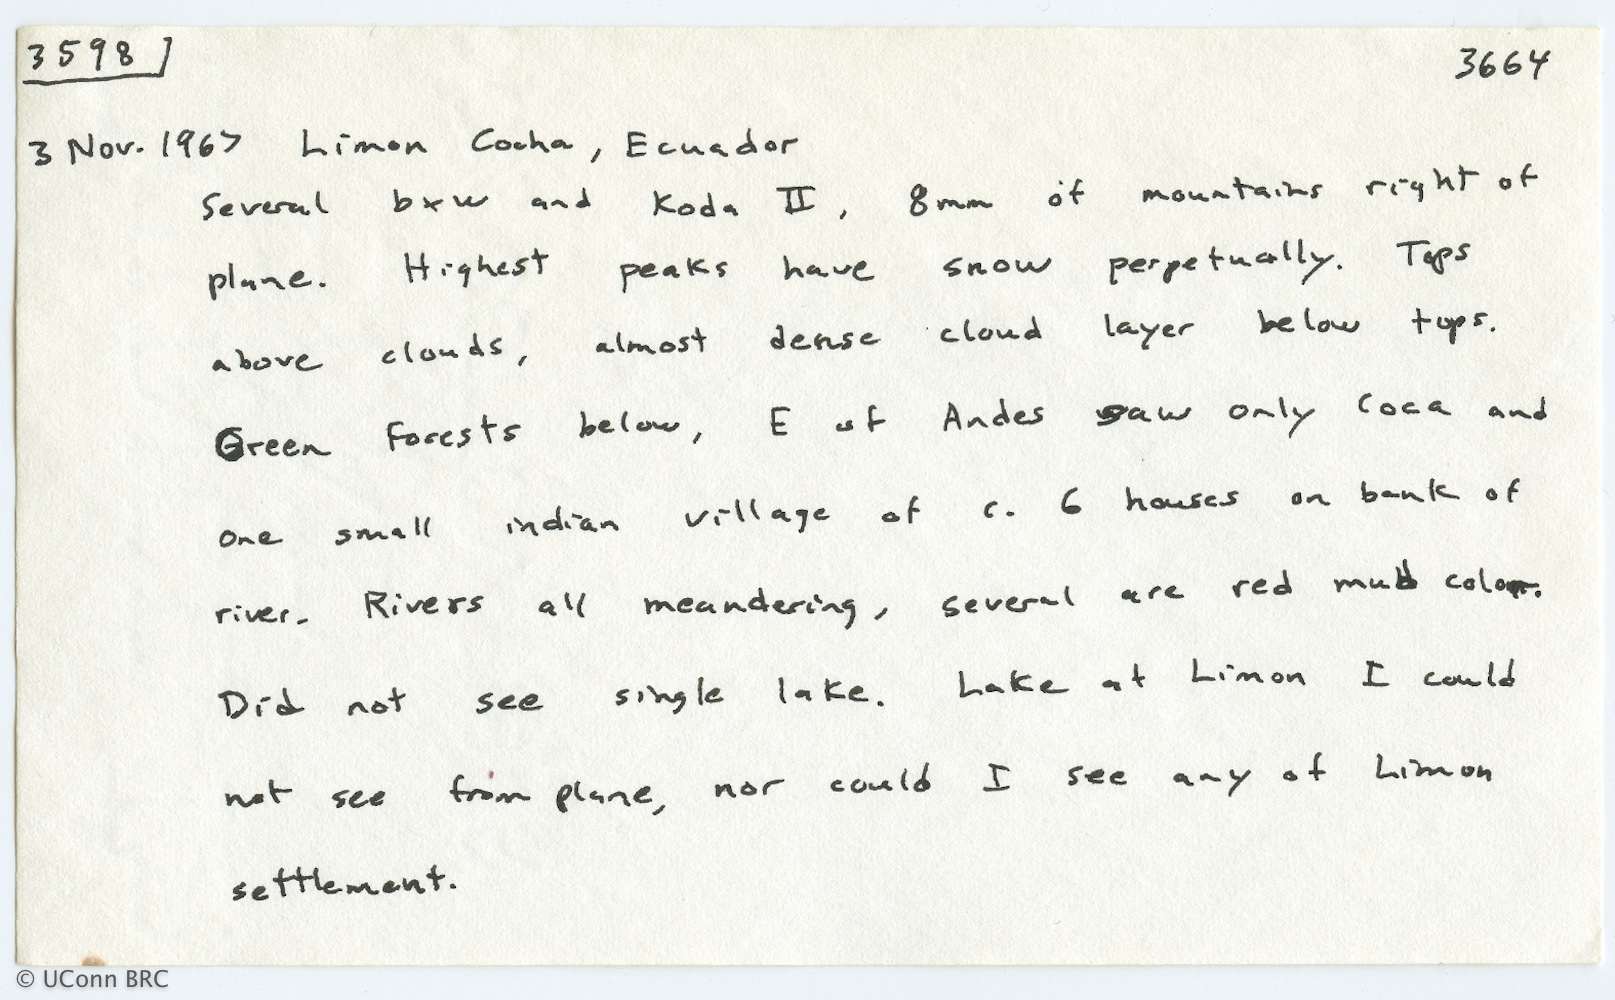 3598 3664
3 Nov. 1967 Limon Cocha, Ecuador
Several bxw and Koda II, 8mm of mountains right of
plane. Highest peaks have snow perpetually. Tops
above clouds, almost dense cloud layer below tops.
Green forests below, E of Andes saw only Coca and
one small indian village of c. 6 houses on bank of
river. Rivers all meandering, several are red mud color.
Did not see single lake. Lake at Limon I could
not see from plane, nor could I see any of Limon
settlement.
© UConn BRC